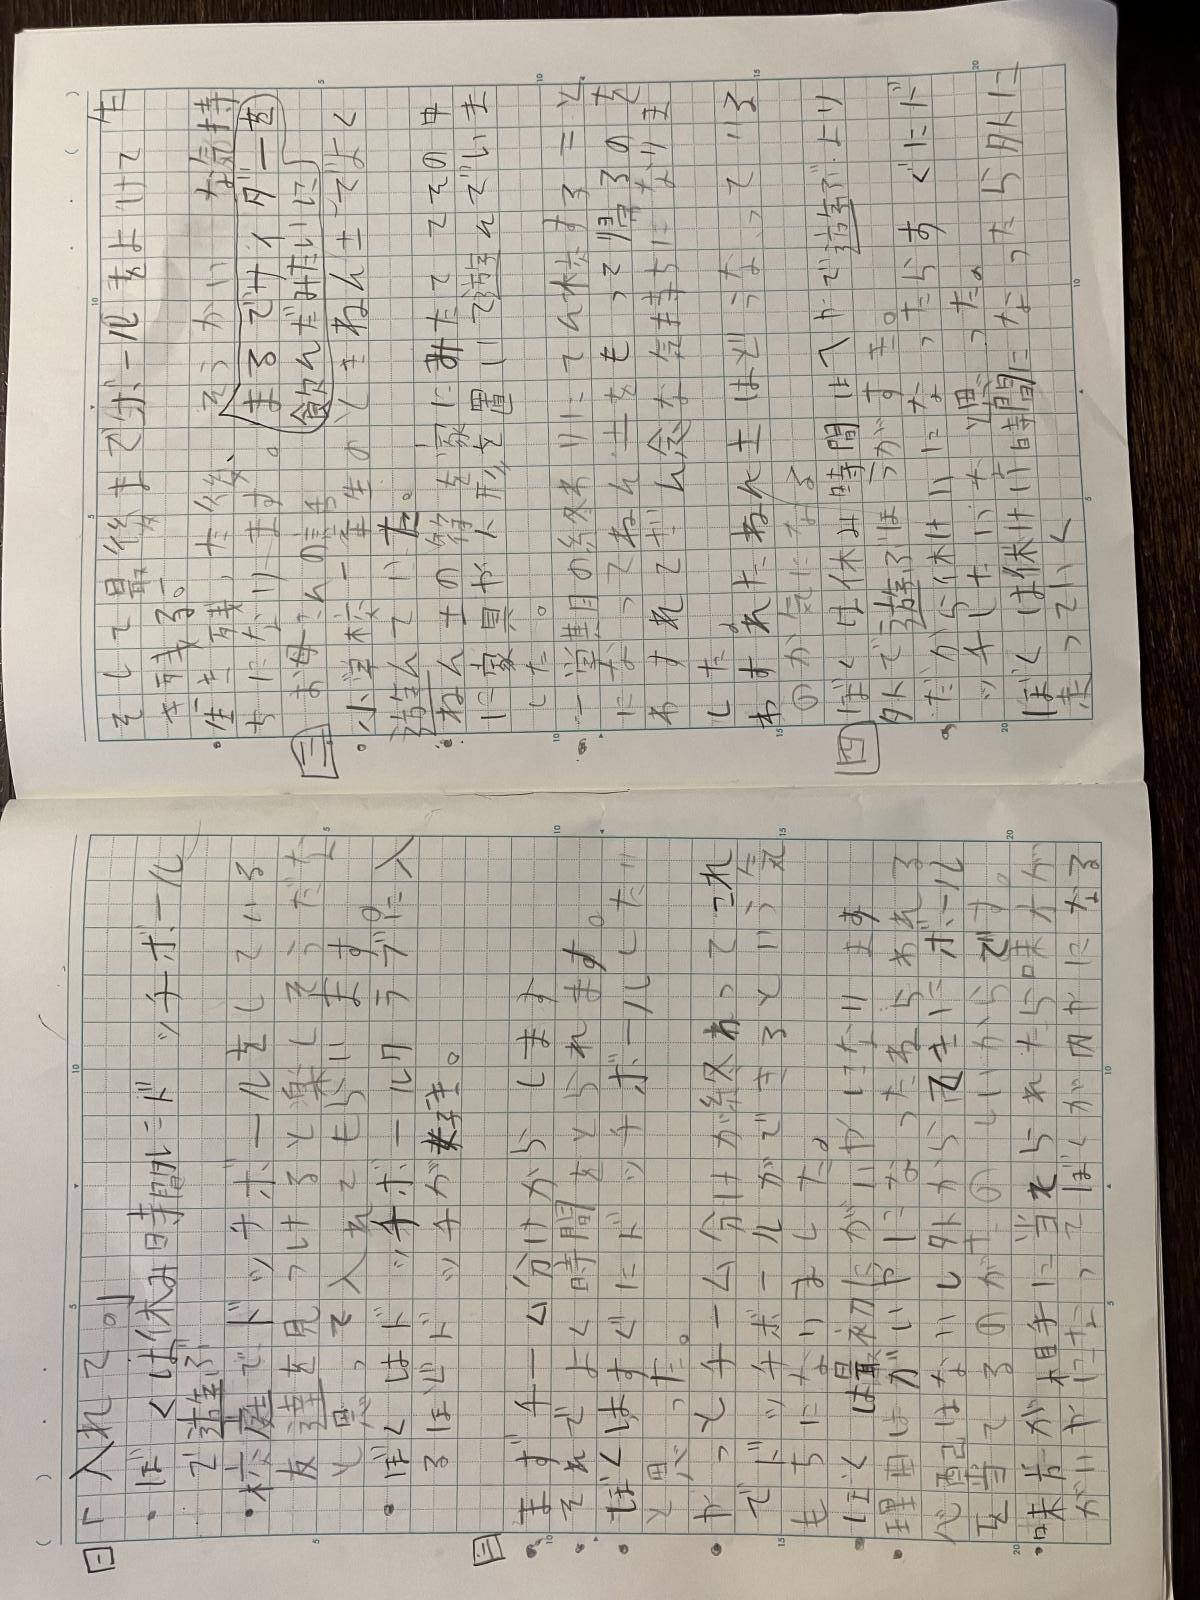 一
「入れて。」
・ぼくは休み時間にドッチボール
で遊ぶ
・校庭でドッチボールをしている
友達を見つけると楽しそうだな
と思って入れてもらいます。
・ぼくはドッチボールクラブに入
るほどドッチが好き。
二
まずチーム分けからします
それでよく時間をとられます。
ぼくはすぐにドッチボールしたい
と思った。
やっとチーム分けが終わってこれ
でドッチボールができるという気
もちになりました。
ぼくは最初にがいやになります
理由はがいやになったらねらわれる
心配はないし外からてきにボール
を当てるのがたのしいからです。
味方が相手に当てられたら味方が
がいやになってぼくが内やになる
そして最後までボールをよけて生
き残る。
生き残った後、そうかいな気持
ちになります。まるでサイダーを
飲んだみたいに
三
お母さんの話
・小学校一年生のときねん土でよく
遊んでいた。
ねん土の箱を家にみたててその中
に家具や人形を置いて遊んでいま
した。
一学期の終わりにてん校すること
になってねん土をもって帰るのを
わすれてざんねんな気持ちになりま
した。
わすれたねん土はどうなっている
のか気になる
四
ぼくは休み時間はへやで遊ぶより
外で遊ぶほうがすき。
だから休けいになったらすぐにド
ッチしたいな　と思った。
ぼくは休けい時間になったら外に
走っていく